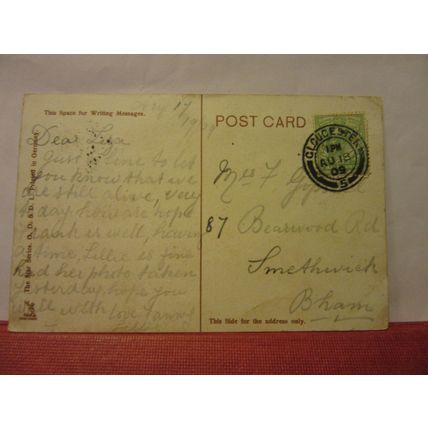 This Space for Writing Messages.
17
Dear Liza
Just time to let
you know that we
are still alive, very
today, hope
is well, 
time, Lillie is fine
had her photo taken
yesterday, hope you
with love
The Star Series. G. D. & D. L. Printed in Germany
POST CARD
GLOUCESTER
1 PM
AU 18
09
5
Mrs F
87 Bearwood Rd
Smethwick
Bham
This Side for the address only.